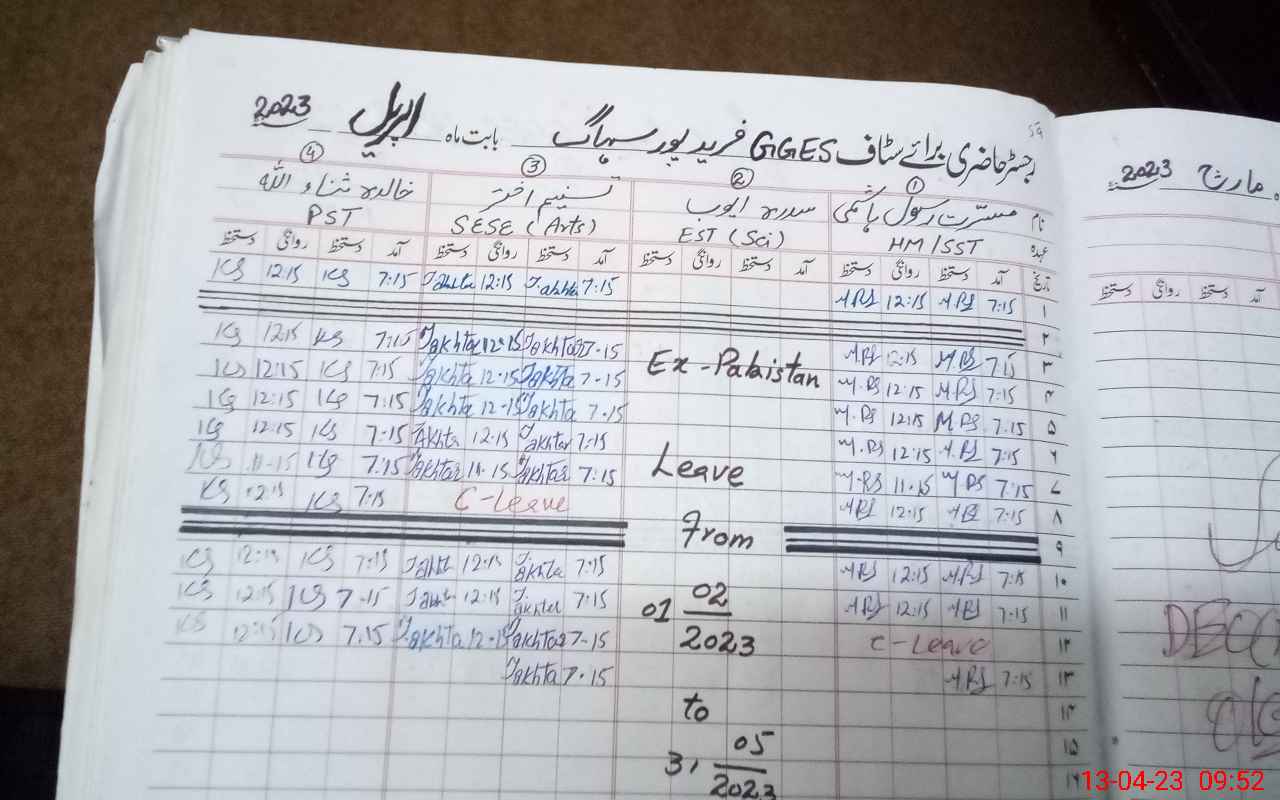 59
رجسٹر حاضری برائے سٹاف GGES فرید پور سہاگ بابت ماہ اپریل 2023
① ② ③ ④
نام مسرت رسول ہاشمی سدرہ ایوب تسنیم اختر خالدہ ثناء اللہ
عہدہ HM/SST EST (Sci) SESE (Arts) PST
تاریخ آمد دستخط روانگی دستخط آمد دستخط روانگی دستخط آمد دستخط روانگی دستخط آمد دستخط روانگی دستخط
۱ 7:15 MRS 12:15 MRS 7:15 Takhta 12:15 Takhta 7:15 KS 12:15 KS
۲
۳ 7:15 M.RS 12:15 M.RS Ex-Pakistan 7-15 Takhtar 12-15 Takhta 7:15 KS 12:15 KS
۴ 7:15 M.RS 12:15 M.RS 7-15 Takhta 12-15 Takhta 7:15 KS 12:15 KS
۵ 7:15 M.RS 12:15 M.RS 7-15 Takhta 12-15 Takhta 7:15 KS 12:15 KS
۶ 7:15 M.RS 12:15 M.RS Leave 7:15 Takhtar 12:15 Takhta 7:15 KS 12:15 KS
۷ 7:15 M.RS 11.15 M.RS 7:15 Takhtar 11.15 Takhtar 7:15 KS 11-15 KS
۸ 7:15 MRS 12:15 MRS From C-Leave 7:15 KS 12:15 KS
۹
۱۰ 7:15 MRS 12:15 MRS 7:15 Takhta 12:15 Takht 7:15 KS 12:15 KS
۱۱ 7:15 MRS 12:15 MRS 01 02/2023 7:15 Takhta 12:15 Takht 7-15 KS 12:15 KS
۱۲ C-Leave 7-15 Takhtar 12-15 Takhta 7.15 KS 12:15 KS
۱۳ 7:15 MRS 7-15 Takhta
۱۴ to
۱۵ 31 05/2023
۱۶
مارچ 2023
آمد دستخط روانگی دستخط
13-04-23 09:52